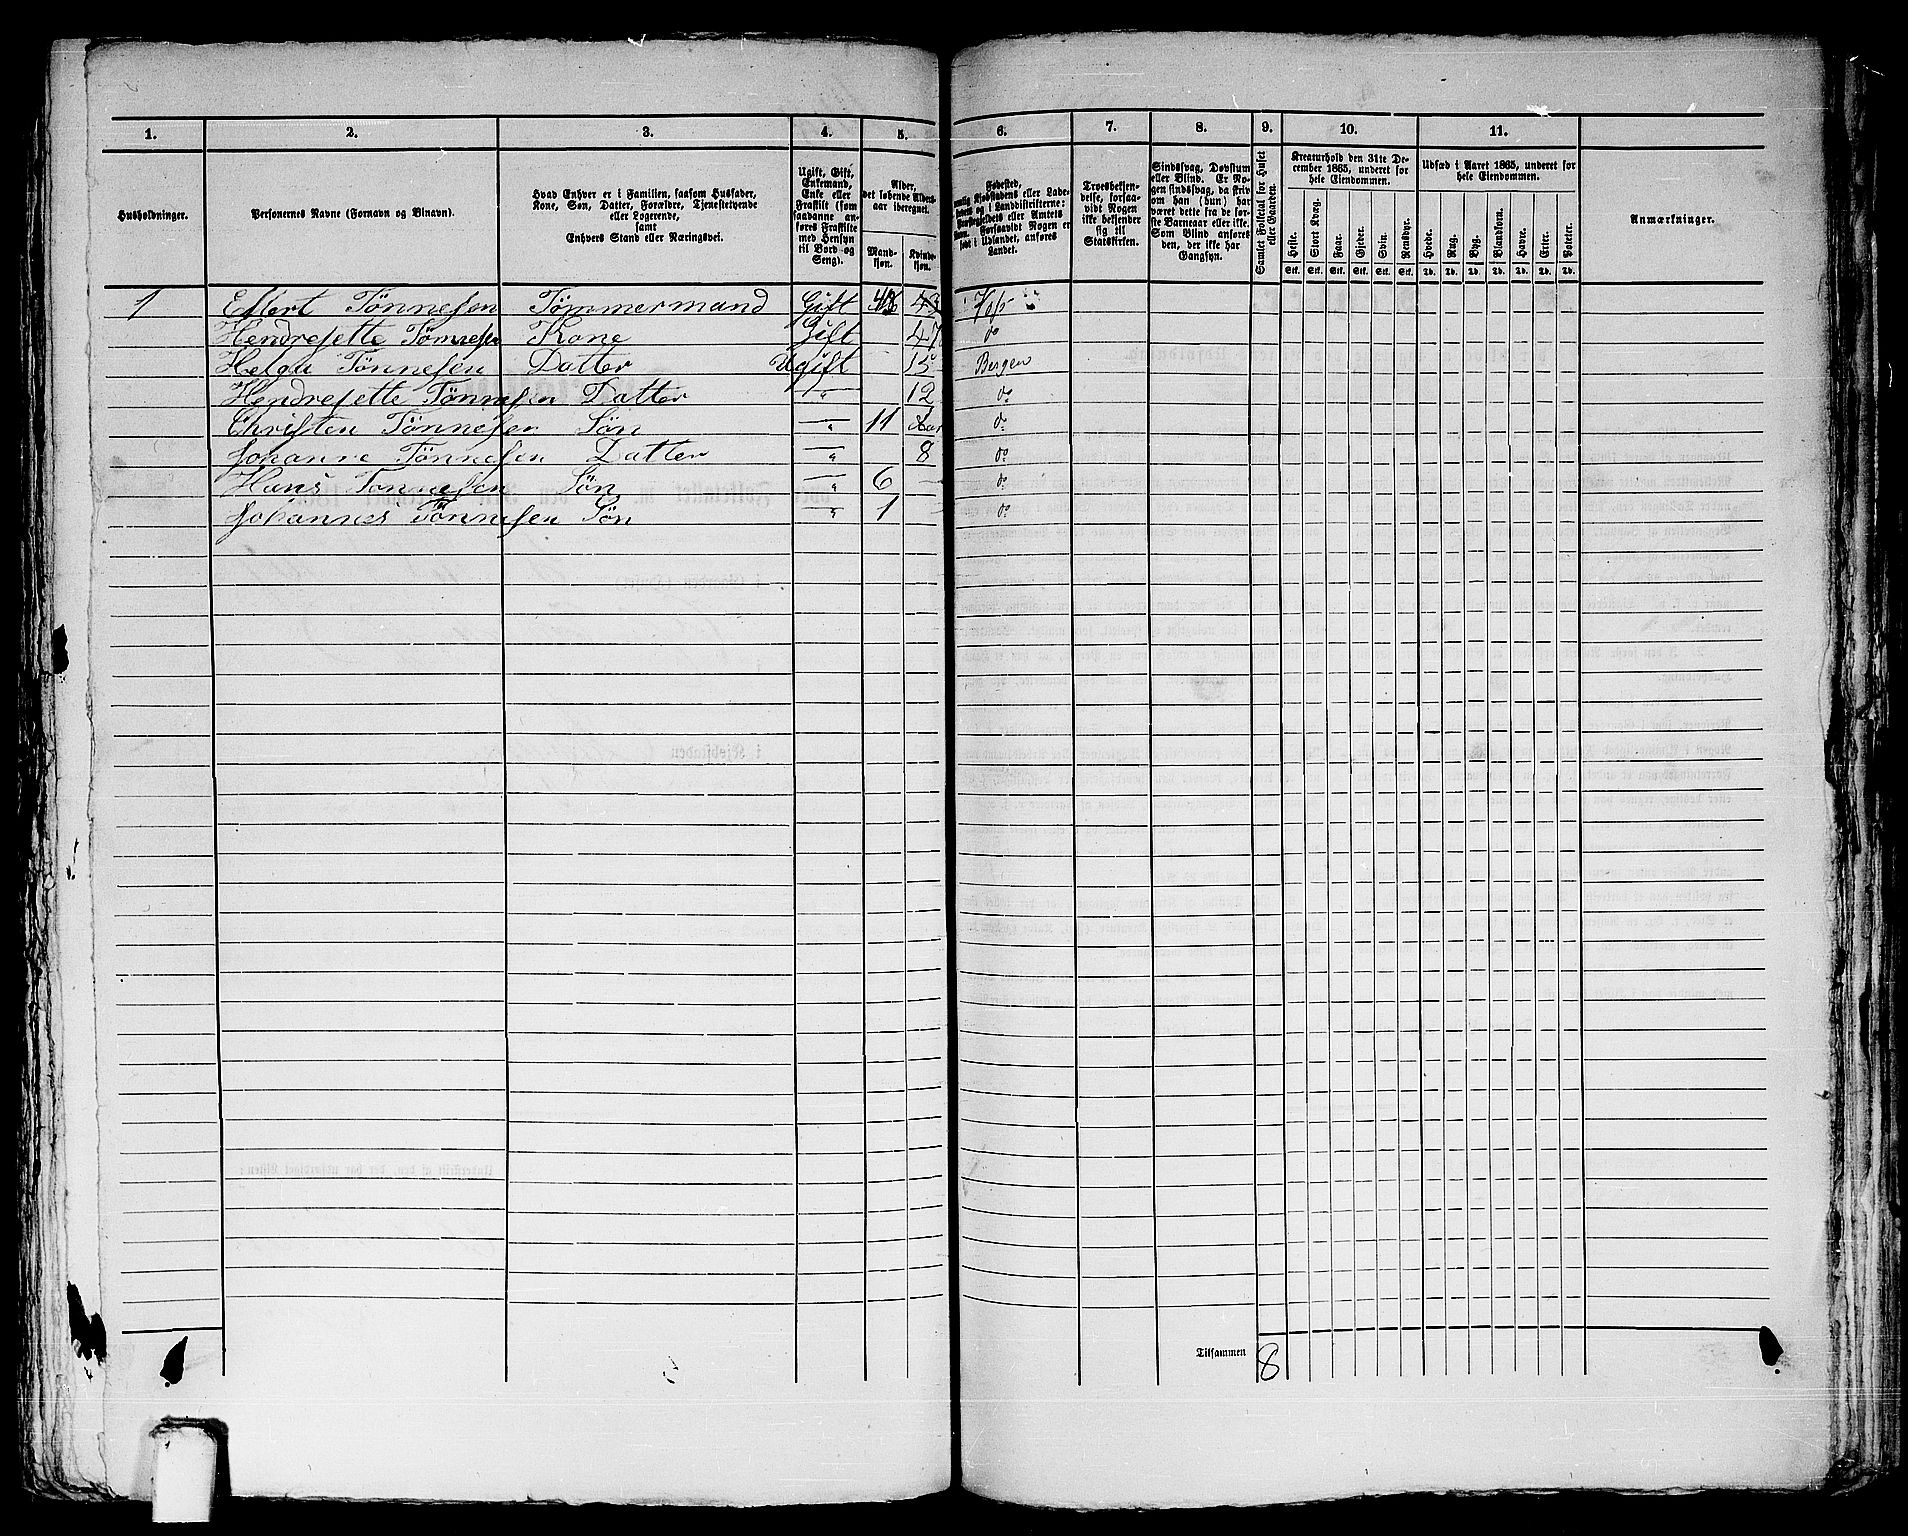 1. 2. 3. 4. 5. 6. 7. 8. 9. 10. 11.
Husholdninger.
Personernes Navne (Fornavn og Binavn).
Hvad Enhver er i Familien, saasom Husfader,
Kone, Søn, Datter, Forældre, Tjenestetyende
eller Logerende,
samt
Enhvers Stand eller Næringsvei.
Ugift, Gift,
Enkemand,
Enke eller
Fraskilt (som
saadanne an-
føres Fraskilte
med Hensyn
til Bord og
Seng).
Alder,
det løbende Alders-
aar iberegnet.
Mand-
kjøn.
Kvinde-
kjøn.
Fødested,
Kjøbstadens eller Lade-
og i Landdistrikterne:
Præstegjeldets eller Amtets
Navn. Forsaavidt Nogen er
født i Udlandet, anføres
Landet.
Troesbekjen-
delse, forsaa-
vidt Nogen
ikke bekjender
sig til
Statskirken.
Sindssvag, Døvstum
eller Blind. Er No-
gen sindssvag, da skriv
om han (hun) har
været dette fra de før-
ste Barneaar eller ikke.
Som Blind anføres
den, der ikke har
Gangsyn.
Samlet Folketal for Huset
eller Gaarden.
Kreaturhold den 31te De-
cember 1865, underet for
hele Eiendommen.
Heste. Stort Kvæg. Faar. Gjeder. Svin. Rensdyr.
Stk. Stk. Stk. Stk. Stk. Stk.
Udsæd i Aaret 1865, underet for
hele Eiendommen.
Hvede. Rug. Byg. Blandkorn. Havre. Erter. Poteter.
Td. Td. Td. Td. Td. Td. Td.
Anmærkninger.
1 Eilert Tønnesen Tømmermand Gift 43
Hendresette Tønnesen Kone Gift 47 do
Helga Tønnesen Datter Ugift 15 Bergen
Hendresette Tønnesen Datter " 12 do
Christen Tønnesen Søn " 11 do
Johanne Tønnesen Datter " 8 do
Hans Tønnesen Søn " 6 do
Johannes Tønnesen Søn " 1 do
Tilsammen 8